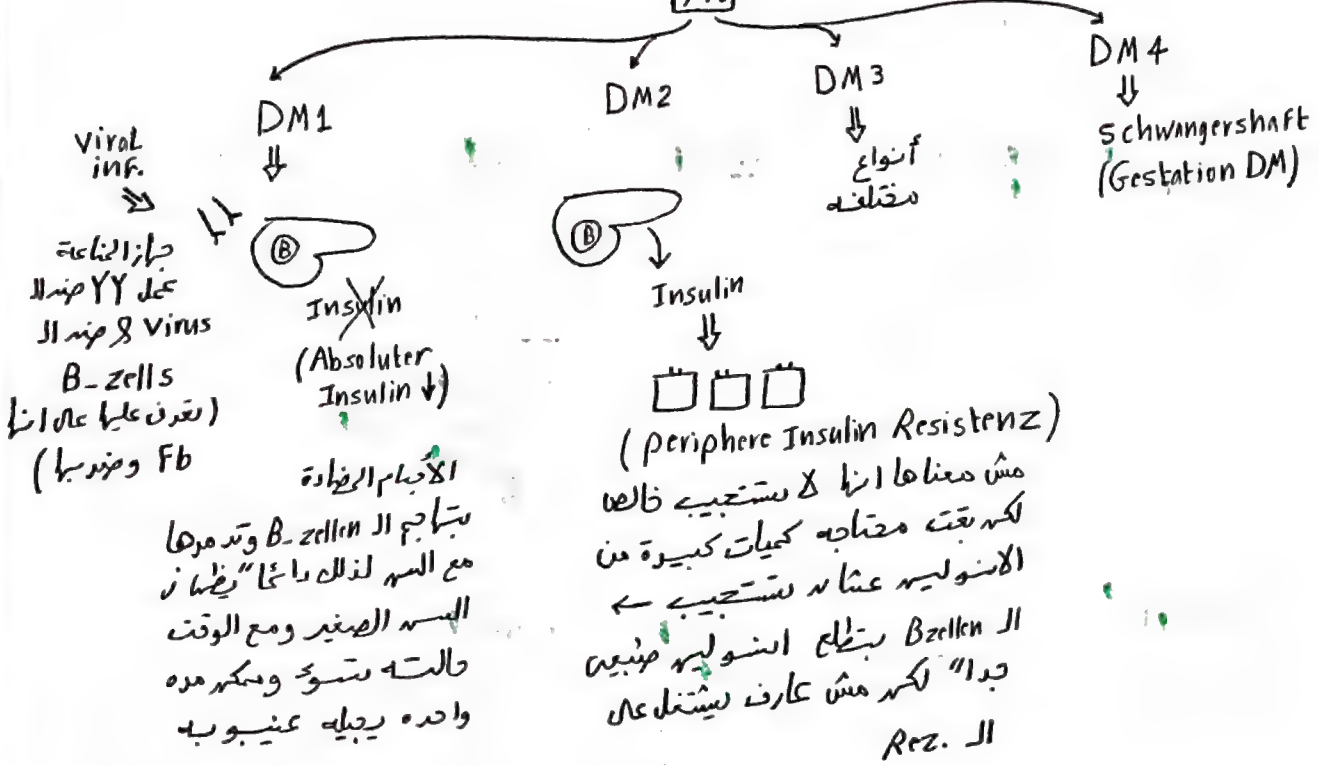 DM1
DM2
DM3
DM4
Viral
inf.
جهاز المناعة
عمل YY ضد الـ
Virus & ضد الـ
B_zells
(تعرف على انها
Fb وضربها)
B
Insulin
(Absoluter
Insulin ↓)
الأجسام المضادة
بتهاجم الـ B_zellen وتدمرها
مع السن لذلك دائماً" يظهر في
السن الصغير ومع الوقت
حالته بتسوء وممكن مره
واحده يجيله غيبوبه
B
Insulin
(periphere Insulin Resistenz)
مش معناها انها لا تستجيب خالص
لكن بقت محتاجه كميات كبيرة من
الانسولين عشان تستجيب ←
الـ Bzellen بتطلع انسولين طبيعي
جدا" لكن مش عارف يشتغل على
الـ Rez.
أنواع
مختلفه
Schwangershaft
(Gestation DM)